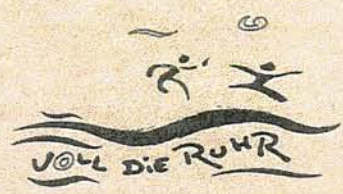 VOLL DiE RUHR